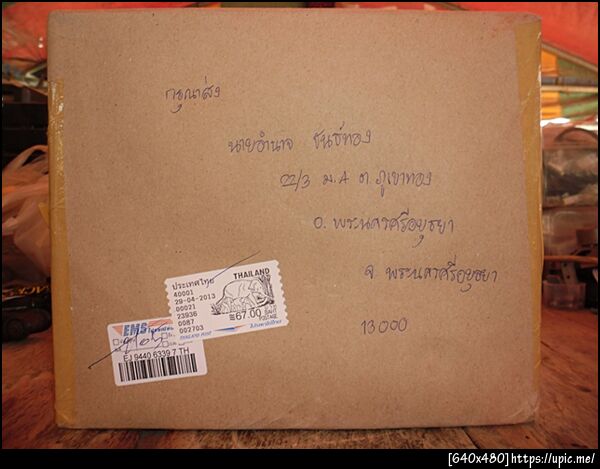 กรุณาส่ง
นายอำนาจ ขันธ์ทอง
22/3 ม.4 ต.ภูเขาทอง
อ. พระนครศรีอยุธยา
จ. พระนครศรีอยุธยา
13000
ประเทศไทย THAILAND
40001
29-04-2013
00021
23936
0087
002703
67.00 BAHT
POSTAGE
ไปรษณีย์ไทย
THAILAND POST
EMS
EJ 9440 6339 7 TH
[640x480]https://upic.me/